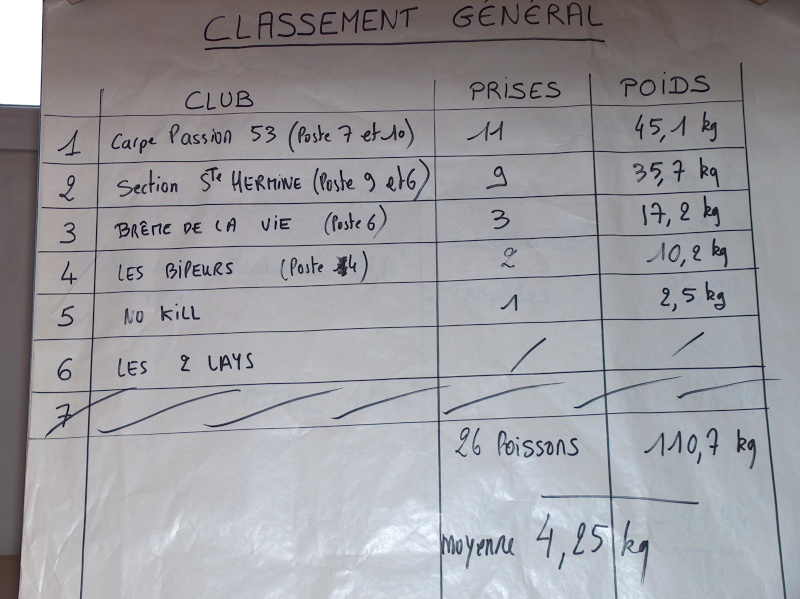 CLASSEMENT GÉNÉRAL
CLUB PRISES POIDS
1 Carpe Passion 53 (Poste 7 et 10) 11 45,1 kg
2 Section Ste HERMINE (Poste 9 et 6) 9 35,7 kg
3 BRÊME DE LA VIE (Poste 6) 3 17,2 kg
4 LES BIPEURS (Poste 4) 2 10,2 kg
5 NO KILL 1 2,5 kg
6 LES 2 LAYS / /
7
26 Poissons 110,7 kg
moyenne 4,25 kg